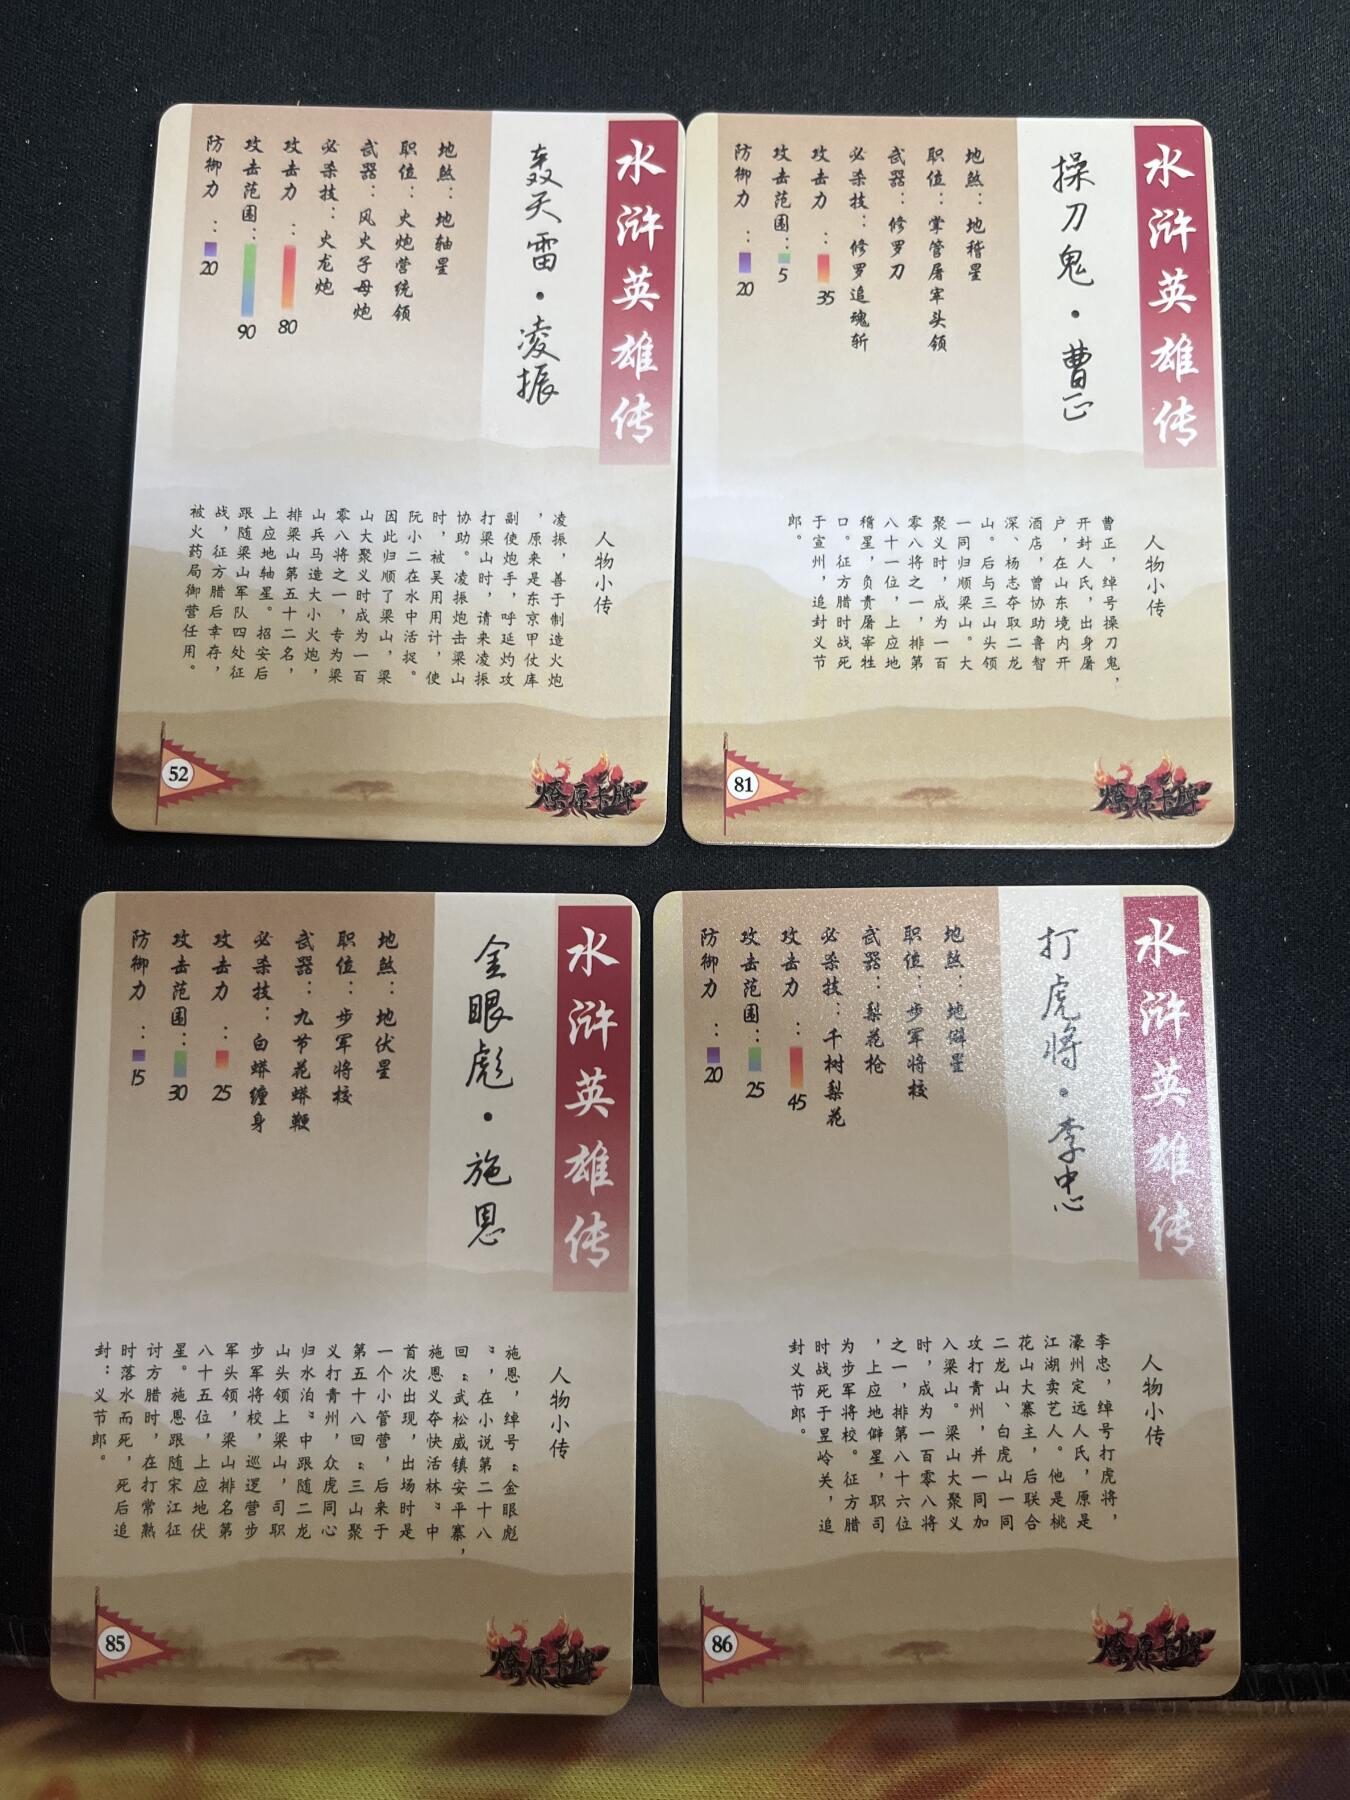 水浒英雄传
轰天雷·凌振
地煞：地轴星
职位：火炮营统领
武器：风火子母炮
必杀技：火龙炮
攻击力：80
攻击范围：90
防御力：20
人物小传
凌振，善于制造火炮
，原来是东京甲仗库
副使炮手，呼延灼攻
打梁山时，请来凌振
协助。凌振炮击梁山
时，被吴用用计，使
阮小二在水中活捉。
因此归顺了梁山，梁
山大聚义时成为一百
零八将之一，专为梁
山兵马造大小火炮，
排梁山第五十二名，
上应地轴星。招安后
跟随梁山军队四处征
战，征方腊后幸存，
被火药局御营任用。
52
燎原卡牌
水浒英雄传
操刀鬼·曹正
地煞：地稽星
职位：掌管屠宰头领
武器：修罗刀
必杀技：修罗追魂斩
攻击力：35
攻击范围：5
防御力：20
人物小传
曹正，绰号操刀鬼，
开封人氏，出身屠
户，在山东境内开
酒店，曾协助鲁智
深、杨志夺取二龙
山。后与三山头领
一同归顺梁山。大
聚义时，成为一百
零八将之一，排第
八十一位，上应地
稽星，负责屠宰牲
口。征方腊时战死
于宣州，追封义节
郎。
81
燎原卡牌
水浒英雄传
金眼彪·施恩
地煞：地伏星
职位：步军将校
武器：九节花蟒鞭
必杀技：白蟒缠身
攻击力：25
攻击范围：30
防御力：15
人物小传
施恩，绰号“金眼彪
”，在小说第二十八
回“武松威镇安平寨，
施恩义夺快活林”中
首次出现，出场时是
一个小管营，后来于
第五十八回“三山聚
义打青州，众虎同心
归水泊”中跟随二龙
山头领上梁山，司职
步军将校，巡逻营步
军头领，梁山排名第
八十五位，上应地伏
星。施恩跟随宋江征
讨方腊时，在打常熟
时落水而死，死后追
封：义节郎。
85
燎原卡牌
水浒英雄传
打虎将·李忠
地煞：地僻星
职位：步军将校
武器：梨花枪
必杀技：千树梨花
攻击力：45
攻击范围：25
防御力：20
人物小传
李忠，绰号打虎将，
濠州定远人氏，原是
江湖卖艺人。他是桃
花山大寨主，后联合
二龙山、白虎山一同
攻打青州，并一同加
入梁山。梁山大聚义
时，成为一百零八将
之一，排第八十六位
，上应地僻星，职司
为步军将校。征方腊
时战死于昱岭关，追
封义节郎。
86
燎原卡牌